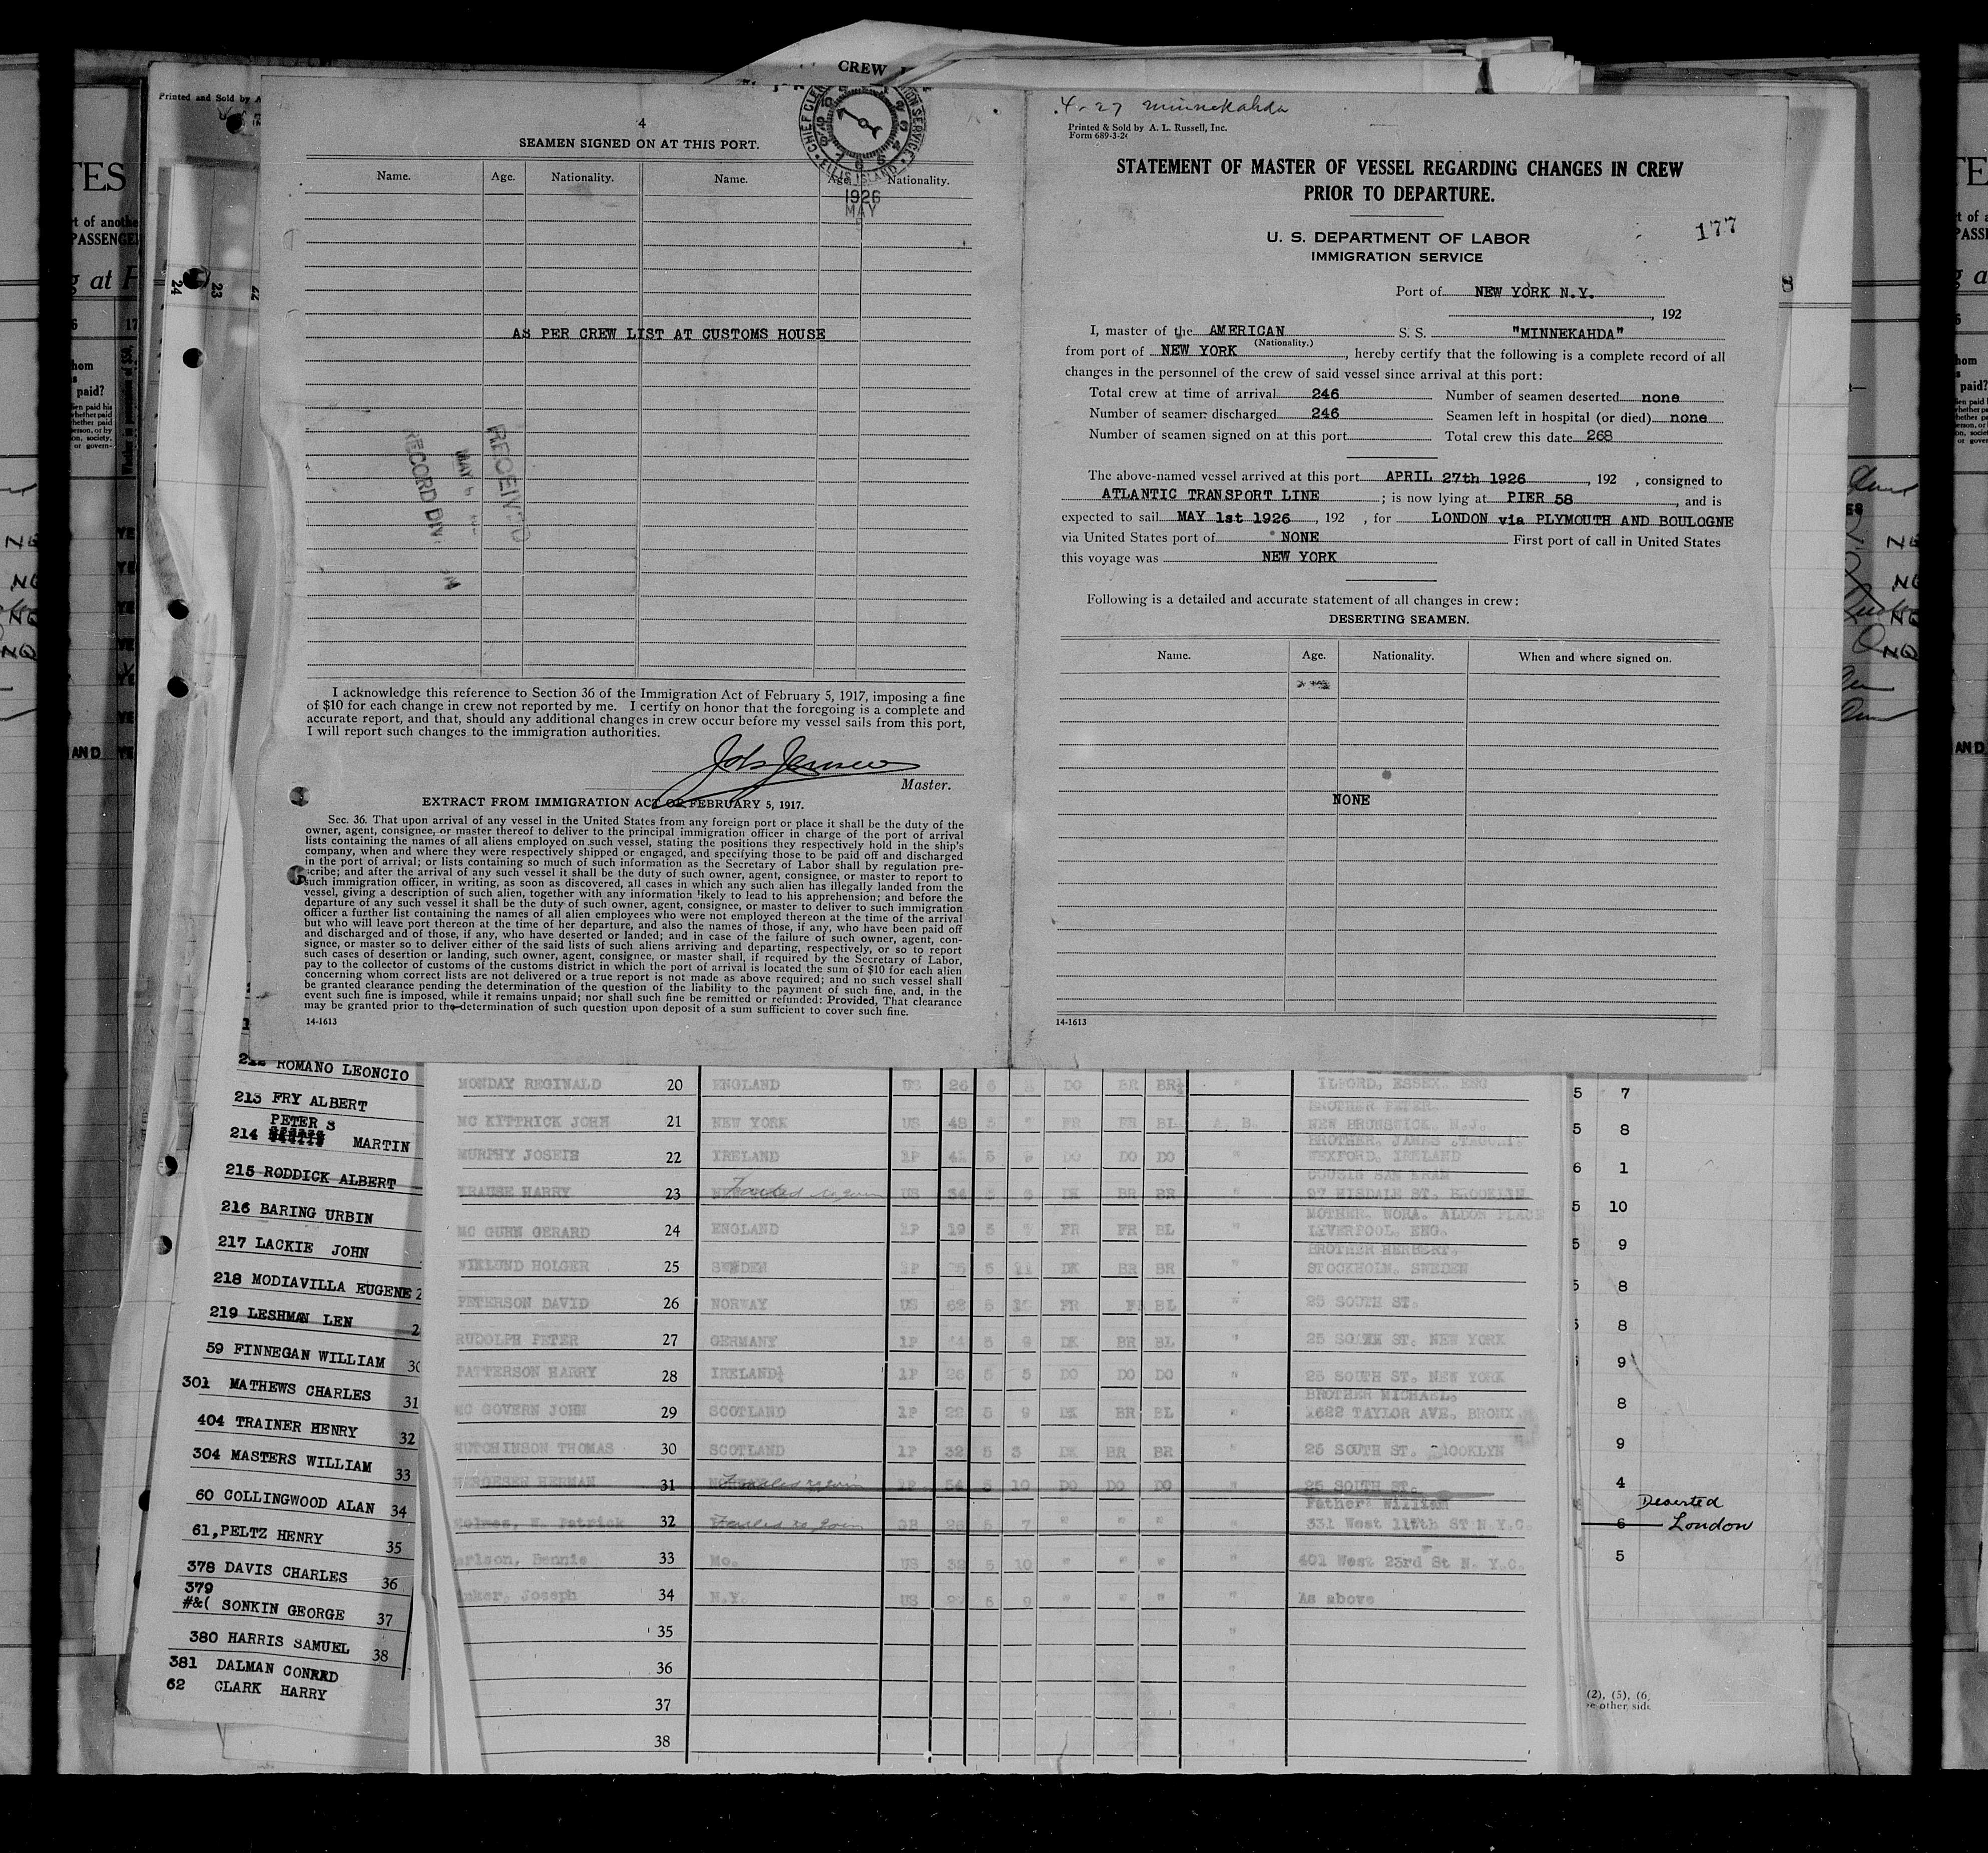 CREW
Printed and Sold by A
4
SEAMEN SIGNED ON AT THIS PORT.
Name. Age. Nationality. Name. Age. Nationality.
CHIEF CLERK
ELLIS ISLAND
1926
MAY
AS PER CREW LIST AT CUSTOMS HOUSE
RECEIVED
MAY
RECORD DIV.
I acknowledge this reference to Section 36 of the Immigration Act of February 5, 1917, imposing a fine
of $10 for each change in crew not reported by me. I certify on honor that the foregoing is a complete and
accurate report, and that, should any additional changes in crew occur before my vessel sails from this port,
I will report such changes to the immigration authorities.
Master.
EXTRACT FROM IMMIGRATION ACT OF FEBRUARY 5, 1917.
Sec. 36. That upon arrival of any vessel in the United States from any foreign port or place it shall be the duty of the
owner, agent, consignee, or master thereof to deliver to the principal immigration officer in charge of the port of arrival
lists containing the names of all aliens employed on such vessel, stating the positions they respectively hold in the ship's
company, when and where they were respectively shipped or engaged, and specifying those to be paid off and discharged
in the port of arrival; or lists containing so much of such information as the Secretary of Labor shall by regulation pre-
scribe; and after the arrival of any such vessel it shall be the duty of such owner, agent, consignee, or master to report to
such immigration officer, in writing, as soon as discovered, all cases in which any such alien has illegally landed from the
vessel, giving a description of such alien, together with any information likely to lead to his apprehension; and before the
departure of any such vessel it shall be the duty of such owner, agent, consignee, or master to deliver to such immigration
officer a further list containing the names of all alien employees who were not employed thereon at the time of the arrival
but who will leave port thereon at the time of her departure, and also the names of those, if any, who have been paid off
and discharged and of those, if any, who have deserted or landed; and in case of the failure of such owner, agent, con-
signee, or master so to deliver either of the said lists of such aliens arriving and departing, respectively, or so to report
such cases of desertion or landing, such owner, agent, consignee, or master shall, if required by the Secretary of Labor,
pay to the collector of customs of the customs district in which the port of arrival is located the sum of $10 for each alien
concerning whom correct lists are not delivered or a true report is not made as above required; and no such vessel shall
be granted clearance pending the determination of the question of the liability to the payment of such fine, and, in the
event such fine is imposed, while it remains unpaid; nor shall such fine be remitted or refunded: Provided, That clearance
may be granted prior to the determination of such question upon deposit of a sum sufficient to cover such fine.
14-1613
4-27 Minnekahda
Printed & Sold by A. L. Russell, Inc.
Form 689-3-2
STATEMENT OF MASTER OF VESSEL REGARDING CHANGES IN CREW
PRIOR TO DEPARTURE.
177
U. S. DEPARTMENT OF LABOR
IMMIGRATION SERVICE
Port of NEW YORK N.Y.
, 192
I, master of the AMERICAN S. S. "MINNEKAHDA"
(Nationality.)
from port of NEW YORK , hereby certify that the following is a complete record of all
changes in the personnel of the crew of said vessel since arrival at this port:
Total crew at time of arrival 246 Number of seamen deserted none
Number of seamen discharged 246 Seamen left in hospital (or died) none
Number of seamen signed on at this port Total crew this date 268
The above-named vessel arrived at this port APRIL 27th 1926 , 192 , consigned to
ATLANTIC TRANSPORT LINE ; is now lying at PIER 58 , and is
expected to sail MAY 1st 1926 , 192 , for LONDON via PLYMOUTH AND BOULOGNE
via United States port of NONE First port of call in United States
this voyage was NEW YORK
Following is a detailed and accurate statement of all changes in crew:
DESERTING SEAMEN.
Name. Age. Nationality. When and where signed on.
NONE
14-1613
ROMANO LEONCIO
213 FRY ALBERT
PETER S
214 MARTIN
215 RODDICK ALBERT
216 BARING URBIN
217 LACKIE JOHN
218 MODIAVILLA EUGENE 2
219 LESHMAN LEN 2
59 FINNEGAN WILLIAM 30
301 MATHEWS CHARLES 31
404 TRAINER HENRY 32
304 MASTERS WILLIAM 33
60 COLLINGWOOD ALAN 34
61, PELTZ HENRY 35
378 DAVIS CHARLES 36
379
#&( SONKIN GEORGE 37
380 HARRIS SAMUEL 38
381 DALMAN CONRRD
62 CLARK HARRY
MONDAY REGINALD 20 ENGLAND US 26 5 DO BR BR " ILFORD, ESSEX. ENG
BROTHER PETER.
MC KITTRICK JOHN 21 NEW YORK US 48 5 FR FR BL A. B. NEW BRUNSWICK. N.J.
BROTHER. JAMES
MURPHY JOSEIH 22 IRELAND 1P 41 5 DO DO DO " WEXFORD, IRELAND
COUSIN SAM KRAM
KRAUSE HARRY 23 Failed to join US 34 5 6 DK BR BR " 97 HISDALE ST. BROOKLYN
MOTHER. NORA. ALDON PLACE
MC GURN GERARD 24 ENGLAND 1P 19 5 FR FR BL " LIVERPOOL. ENG.
BROTHER HERBERT.
WIKLUND HOLGER 25 SWEDEN 1P 5 11 DK BR BR " STOCKHOLM. SWEDEN
PETERSON DAVID 26 NORWAY US 5 FR BL " 25 SOUTH ST.
RUDOLPH PETER 27 GERMANY 1P 44 5 9 DK BR BL " 25 SOUTH ST. NEW YORK
PATTERSON HARRY 28 IRELAND 1P 26 5 5 DO DO DO " 25 SOUTH ST. NEW YORK
BROTHER MICHAEL.
MC GOVERN JOHN 29 SCOTLAND 1P 22 5 9 DK BR BL " 1622 TAYLOR AVE. BRONX
HUTCHINSON THOMAS 30 SCOTLAND 1P 32 5 3 DK BR BR " 25 SOUTH ST. BROOKLYN
HERMAN 31 Failed to join 1P 54 5 10 DO DO DO " 25 SOUTH ST.
Father: William
Holmes, W. Patrick 32 Failed to join 26 5 7 " " " " 331 West 11th ST N.Y.C.
arlson, Bennie 33 Mo. US 32 5 10 " " " " 401 West 23rd St N. Y.C.
Joseph 34 N.Y. US 5 9 " " " " As above
35
36
37
38
5 7
5 8
6 1
5 10
5 9
5 8
8
9
8
9
4
Deserted
6 London
5